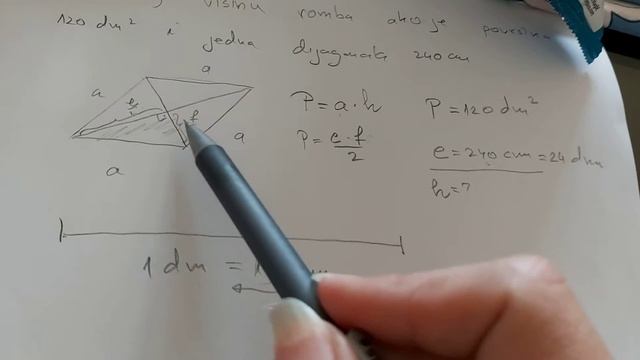 visinu romba ako je površina
120 dm² i jedna dijagonala 240 cm
a
a
a
a
P = a · h
P = e · f / 2
P = 120 dm²
e = 240 cm = 24 dm
h = ?
1 dm = 1